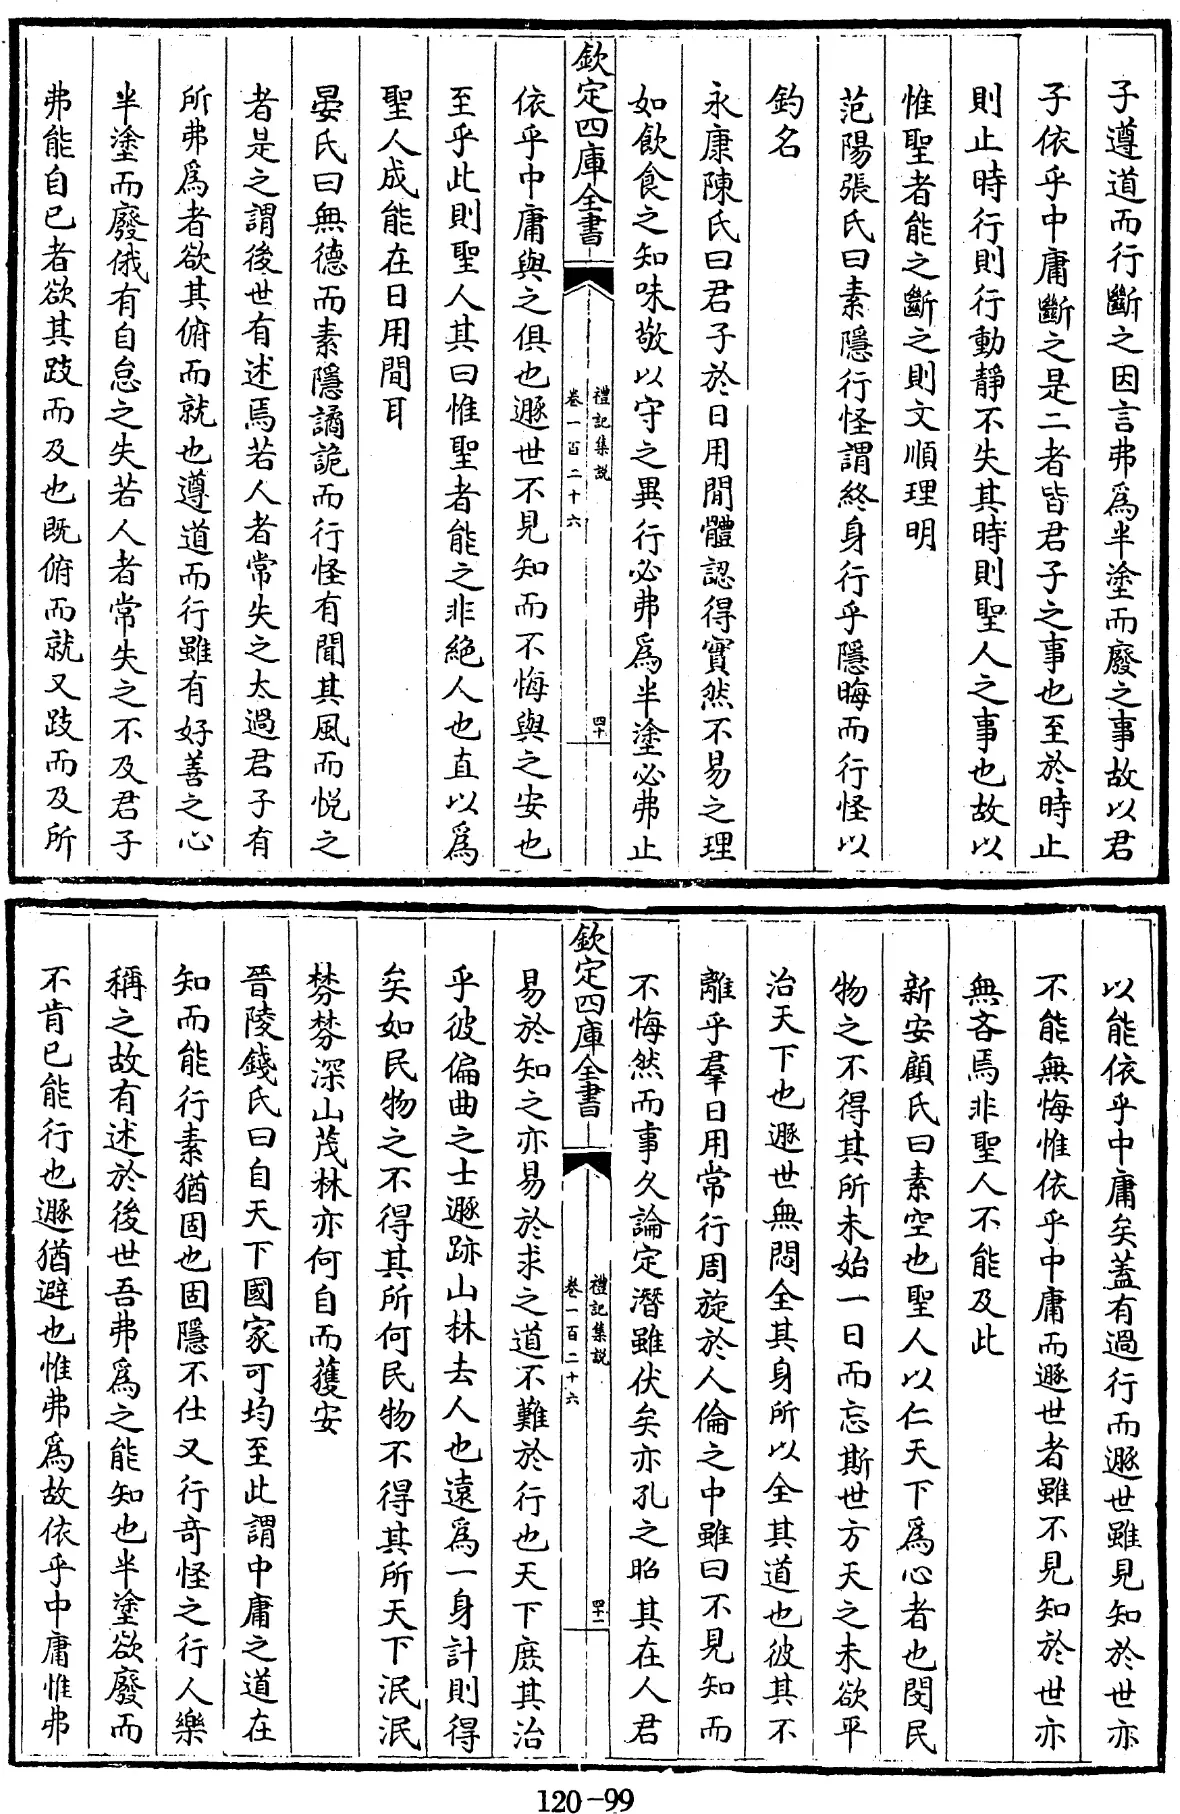 子遵道而行斷之因言弗爲半塗而廢之事故以君
子依乎中庸斷之是二者皆君子之事也至於時止
則止時行則行動靜不失其時則聖人之事也故以
惟聖者能之斷之則文順理明
范陽張氏曰素隱行怪謂終身行乎隱晦而行怪以
釣名
永康陳氏曰君子於日用間體認得實然不易之理
如飲食之知味敬以守之異行必弗爲半塗必弗止
欽定四庫全書
禮記集說
卷一百二十六
四十
依乎中庸與之俱也遯世不見知而不悔與之安也
至乎此則聖人其曰惟聖者能之非絶人也直以爲
聖人成能在日用間耳
晏氏曰無德而素隱譎詭而行怪有聞其風而悅之
者是之謂後世有述焉若人者常失之太過君子有
所弗爲者欲其俯而就也遵道而行雖有好善之心
半塗而廢俄有自怠之失若人者常失之不及君子
弗能自已者欲其跂而及也既俯而就又跂而及所
以能依乎中庸矣蓋有過行而遯世雖見知於世亦
不能無悔惟依乎中庸而遯世者雖不見知於世亦
無吝焉非聖人不能及此
新安顧氏曰素空也聖人以仁天下爲心者也閔民
物之不得其所未始一日而忘斯世方天之未欲平
治天下也遯世無悶全其身所以全其道也彼其不
離乎羣日用常行周旋於人倫之中雖曰不見知而
不悔然而事久論定潛雖伏矣亦孔之昭其在人君
欽定四庫全書
禮記集說
卷一百二十六
四十一
易於知之亦易於求之道不難於行也天下庶其治
乎彼偏曲之士遯跡山林去人也遠爲一身計則得
矣如民物之不得其所何民物不得其所天下泯泯
棼棼深山茂林亦何自而獲安
晉陵錢氏曰自天下國家可均至此謂中庸之道在
知而能行素猶固也固隱不仕又行奇怪之行人樂
稱之故有述於後世吾弗爲之能知也半塗欲廢而
不肯已能行也遯猶避也惟弗爲故依乎中庸惟弗
120-99